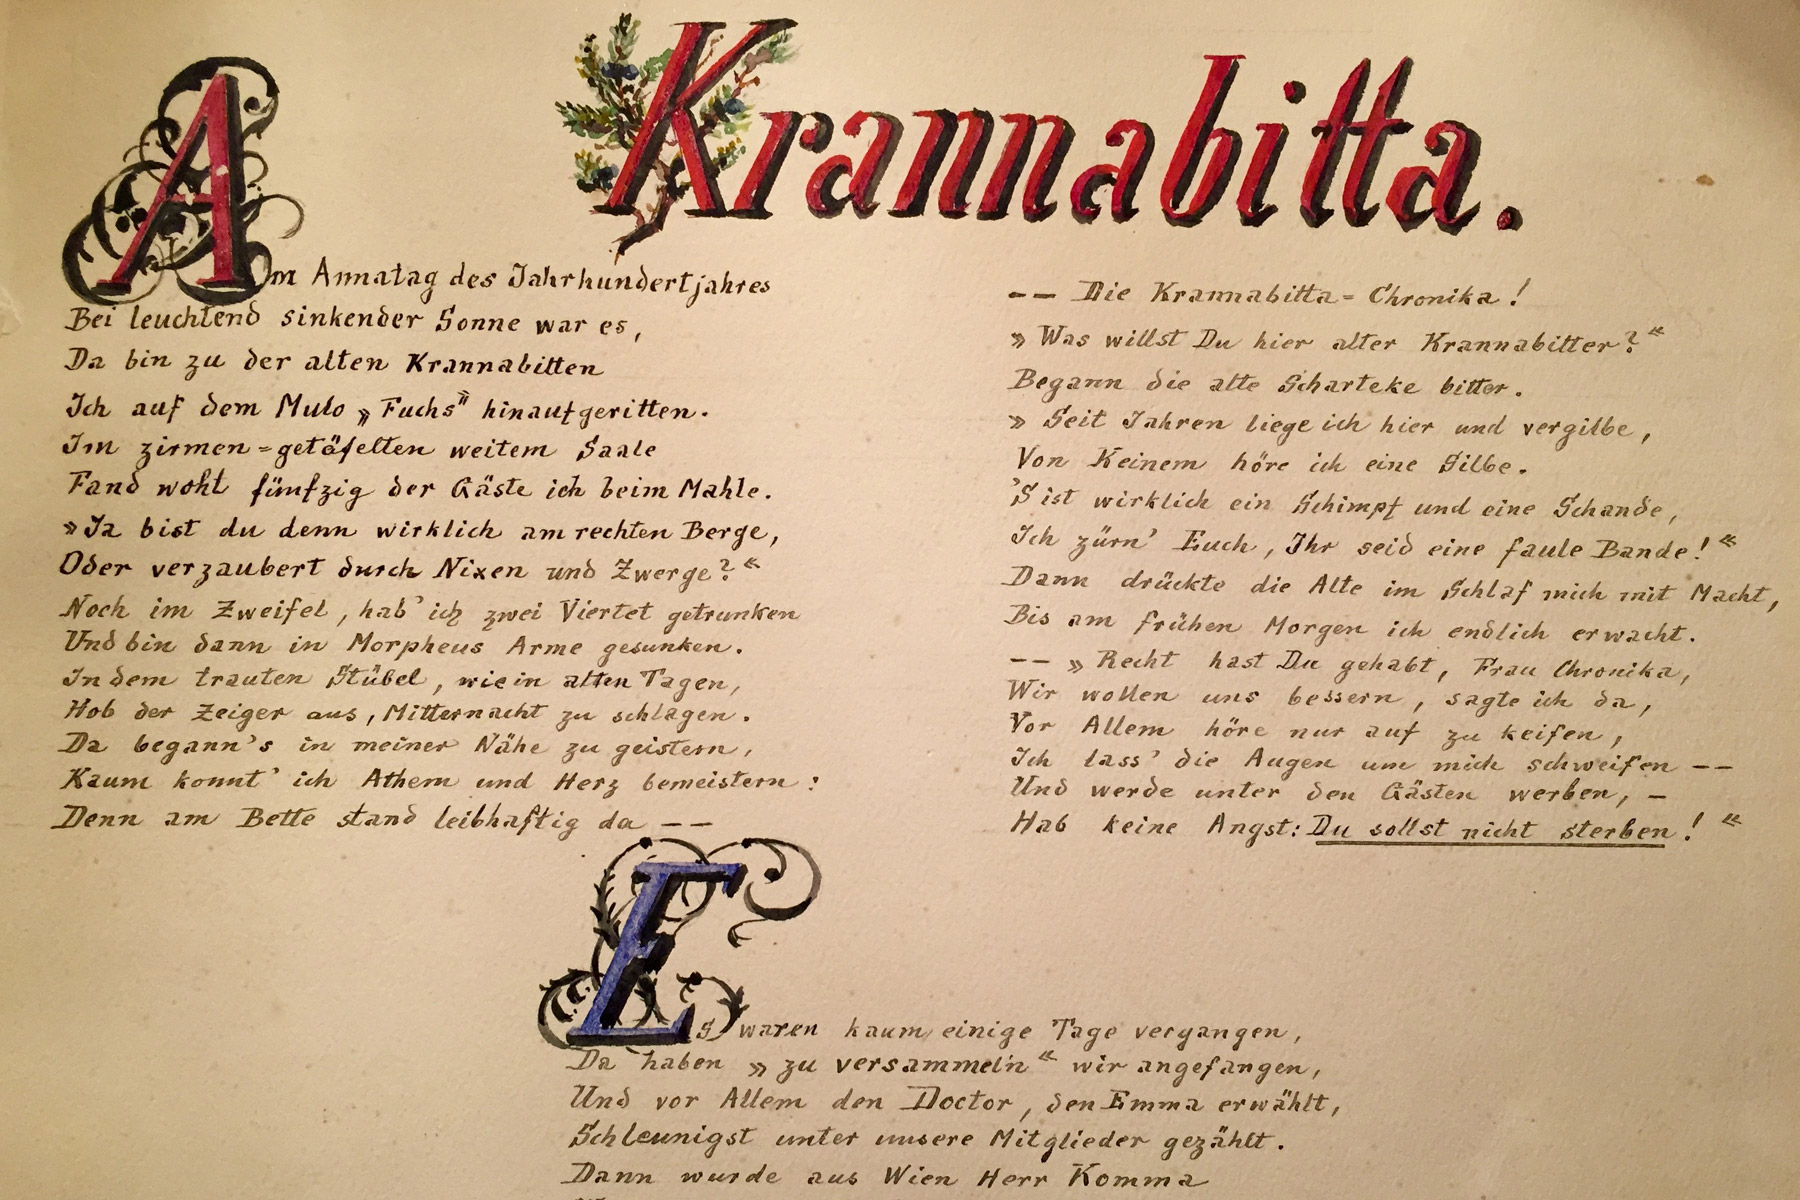 Krannabitta.
Am Annatag des Jahrhundertjahres
Bei leuchtend sinkender Sonne war es,
Da bin zu der alten Krannabitten
Ich auf dem Mulo „Fuchs" hinaufgeritten.
Im zirmen=getäfelten weitem Saale
Fand wohl fünfzig der Gäste ich beim Mahle.
»Ja bist du denn wirklich am rechten Berge,
Oder verzaubert durch Nixen und Zwerge?«
Noch im Zweifel, hab' ich zwei Viertel getrunken
Und bin dann in Morpheus Arme gesunken.
In dem trauten Stübel, wie in alten Tagen,
Hob der Zeiger aus, Mitternacht zu schlagen.
Da begann's in meiner Nähe zu geistern,
Kaum konnt' ich Athem und Herz bemeistern:
Denn am Bette stand leibhaftig da ——
—— Die Krannabitta=Chronika!
»Was willst Du hier alter Krannabitter?«
Begann die alte Scharteke bitter.
»Seit Jahren liege ich hier und vergilbe,
Von Keinem höre ich eine Silbe.
'S ist wirklich ein Schimpf und eine Schande,
Ich zürn' Euch, Ihr seid eine faule Bande!«
Dann drückte die Alte im Schlaf mich mit Macht,
Bis am frühen Morgen ich endlich erwacht.
—— »Recht hast Du gehabt, Frau Chronika,
Wir wollen uns bessern, sagte ich da,
Vor Allem höre nur auf zu keifen,
Ich lass' die Augen um mich schweifen ——
Und werde unter den Gästen werben, —
Hab keine Angst: Du sollst nicht sterben!«
Es waren kaum einige Tage vergangen,
Da haben »zu versammeln« wir angefangen,
Und vor Allem den Doctor, den Emma erwählt,
Schleunigst unter unsere Mitglieder gezählt.
Dann wurde aus Wien Herr Komma